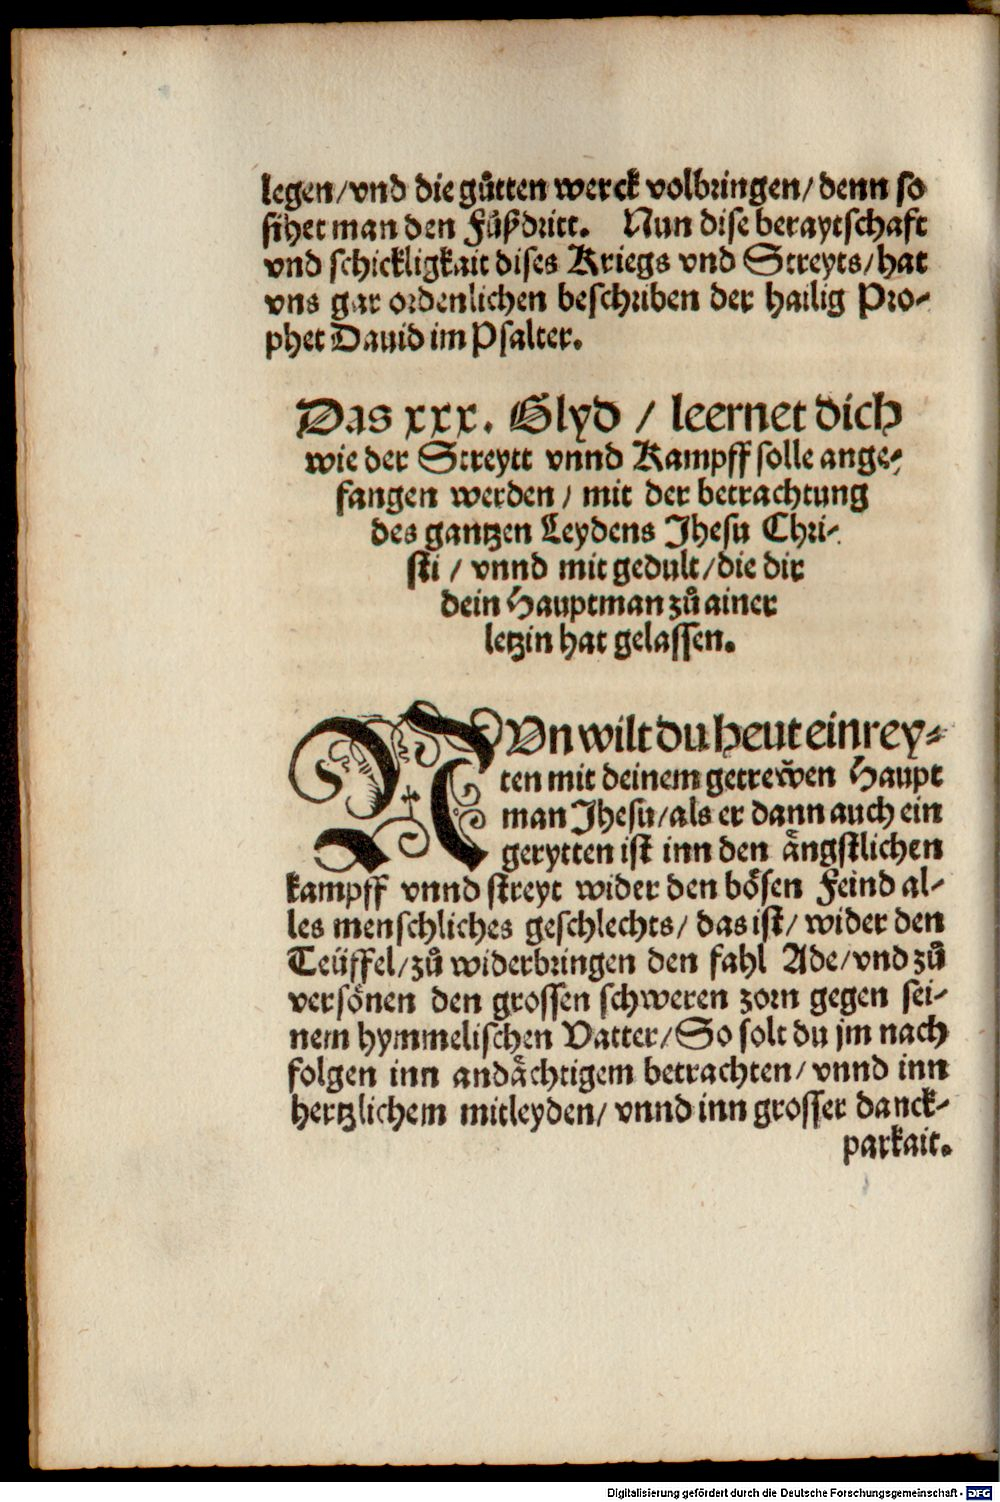 legen/vnd die gůtten werck volbringen/denn so
sihet man den Fůßdritt. Nun dise beraytschaft
vnd schickligkait dises Kriegs vnd Streyts/hat
vns gar ordenlichen beschriben der hailig Pro-
phet Dauid im Psalter.
Das xxx. Glyd / leernet dich
wie der Streytt vnnd Kampff solle ange-
fangen werden / mit der betrachtung
des gantzen Leydens Jhesu Chri-
sti / vnnd mit gedult/die dir
dein Hauptman zů ainer
letzin hat gelassen.
NVn wilt du heut einrey-
ten mit deinem getrew̃en Haupt
man Jhesu/als er dann auch ein
gerytten ist inn den ångstlichen
kampff vnnd streyt wider den bösen Feind al-
les menschliches geschlechts/ das ist/ wider den
Teüffel/zů widerbringen den fahl Ade/vnd zů
versönen den grossen schweren zorn gegen sei-
nem hymmelischen Vatter/So solt du jm nach
folgen inn andåchtigem betrachten/ vnnd inn
hertzlichem mitleyden/ vnnd inn grosser danck-
parkait.
Digitalisierung gefördert durch die Deutsche Forschungsgemeinschaft - DFG